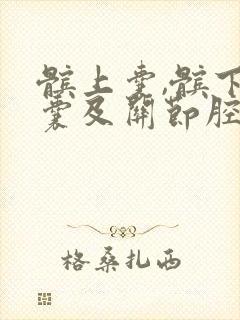 髌上囊,髌下
囊及關節腔
格桑扎西